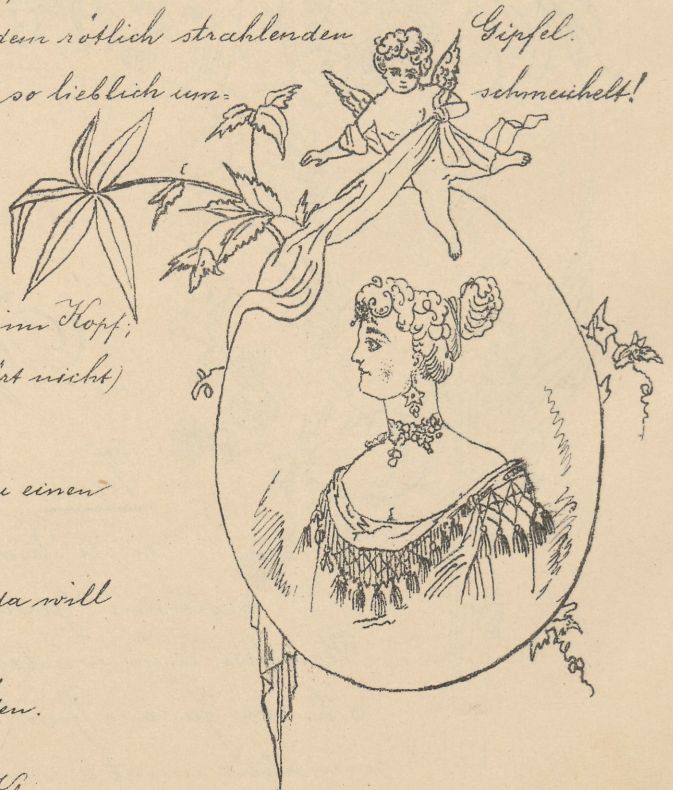 dem rötlich strahlenden Gipfel.
so lieblich um= schmeichelt!
im Kopf;
rt nicht)
einen
da will
en.